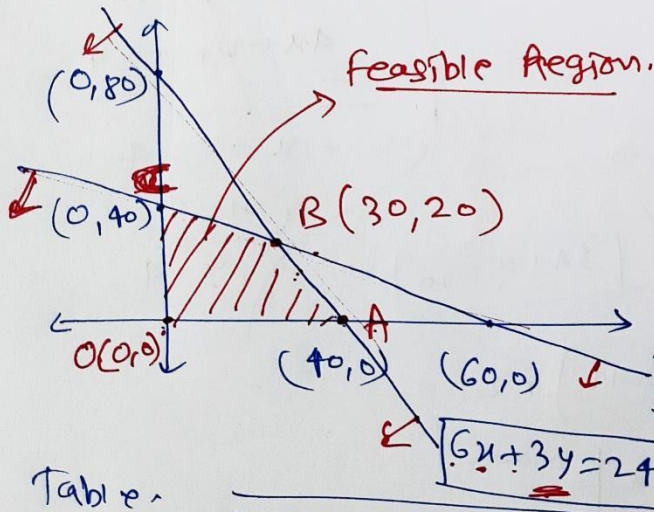 (0,80)
Feasible Region.
(0,40)
B(30,20)
O(0,0)
A
(40,0)
(60,0)
6x+3y=24
Table.